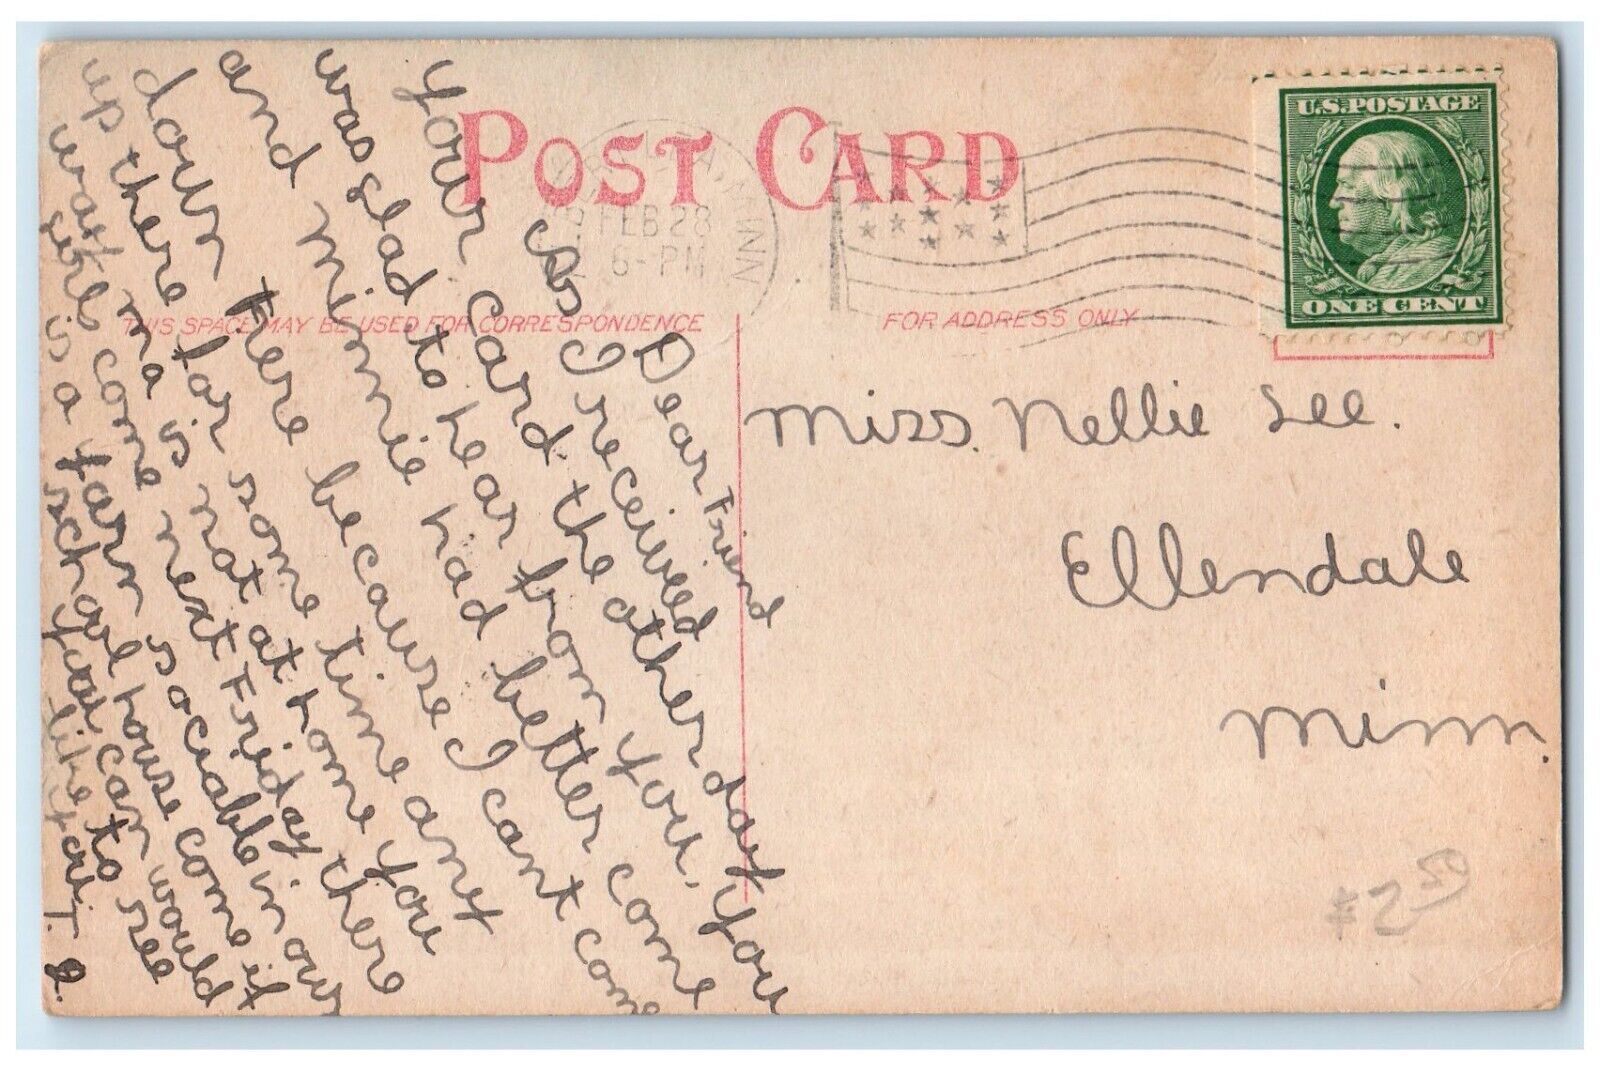 POST CARD
FEB 28
6-PM
MINN
U.S.POSTAGE
ONE CENT
THIS SPACE MAY BE USED FOR CORRESPONDENCE
FOR ADDRESS ONLY
Dear Friend
As I received
your card the other day you
was glad to hear from you, you
and minnie had better come
down there because I cant come
up there for some time any
ma is not at home you
wat come next Friday there
girls is a farm sociable in our
school house come if
you can would
like to see
you.
T. J.
Miss. Nellie Lee.
Ellendale
Minn.